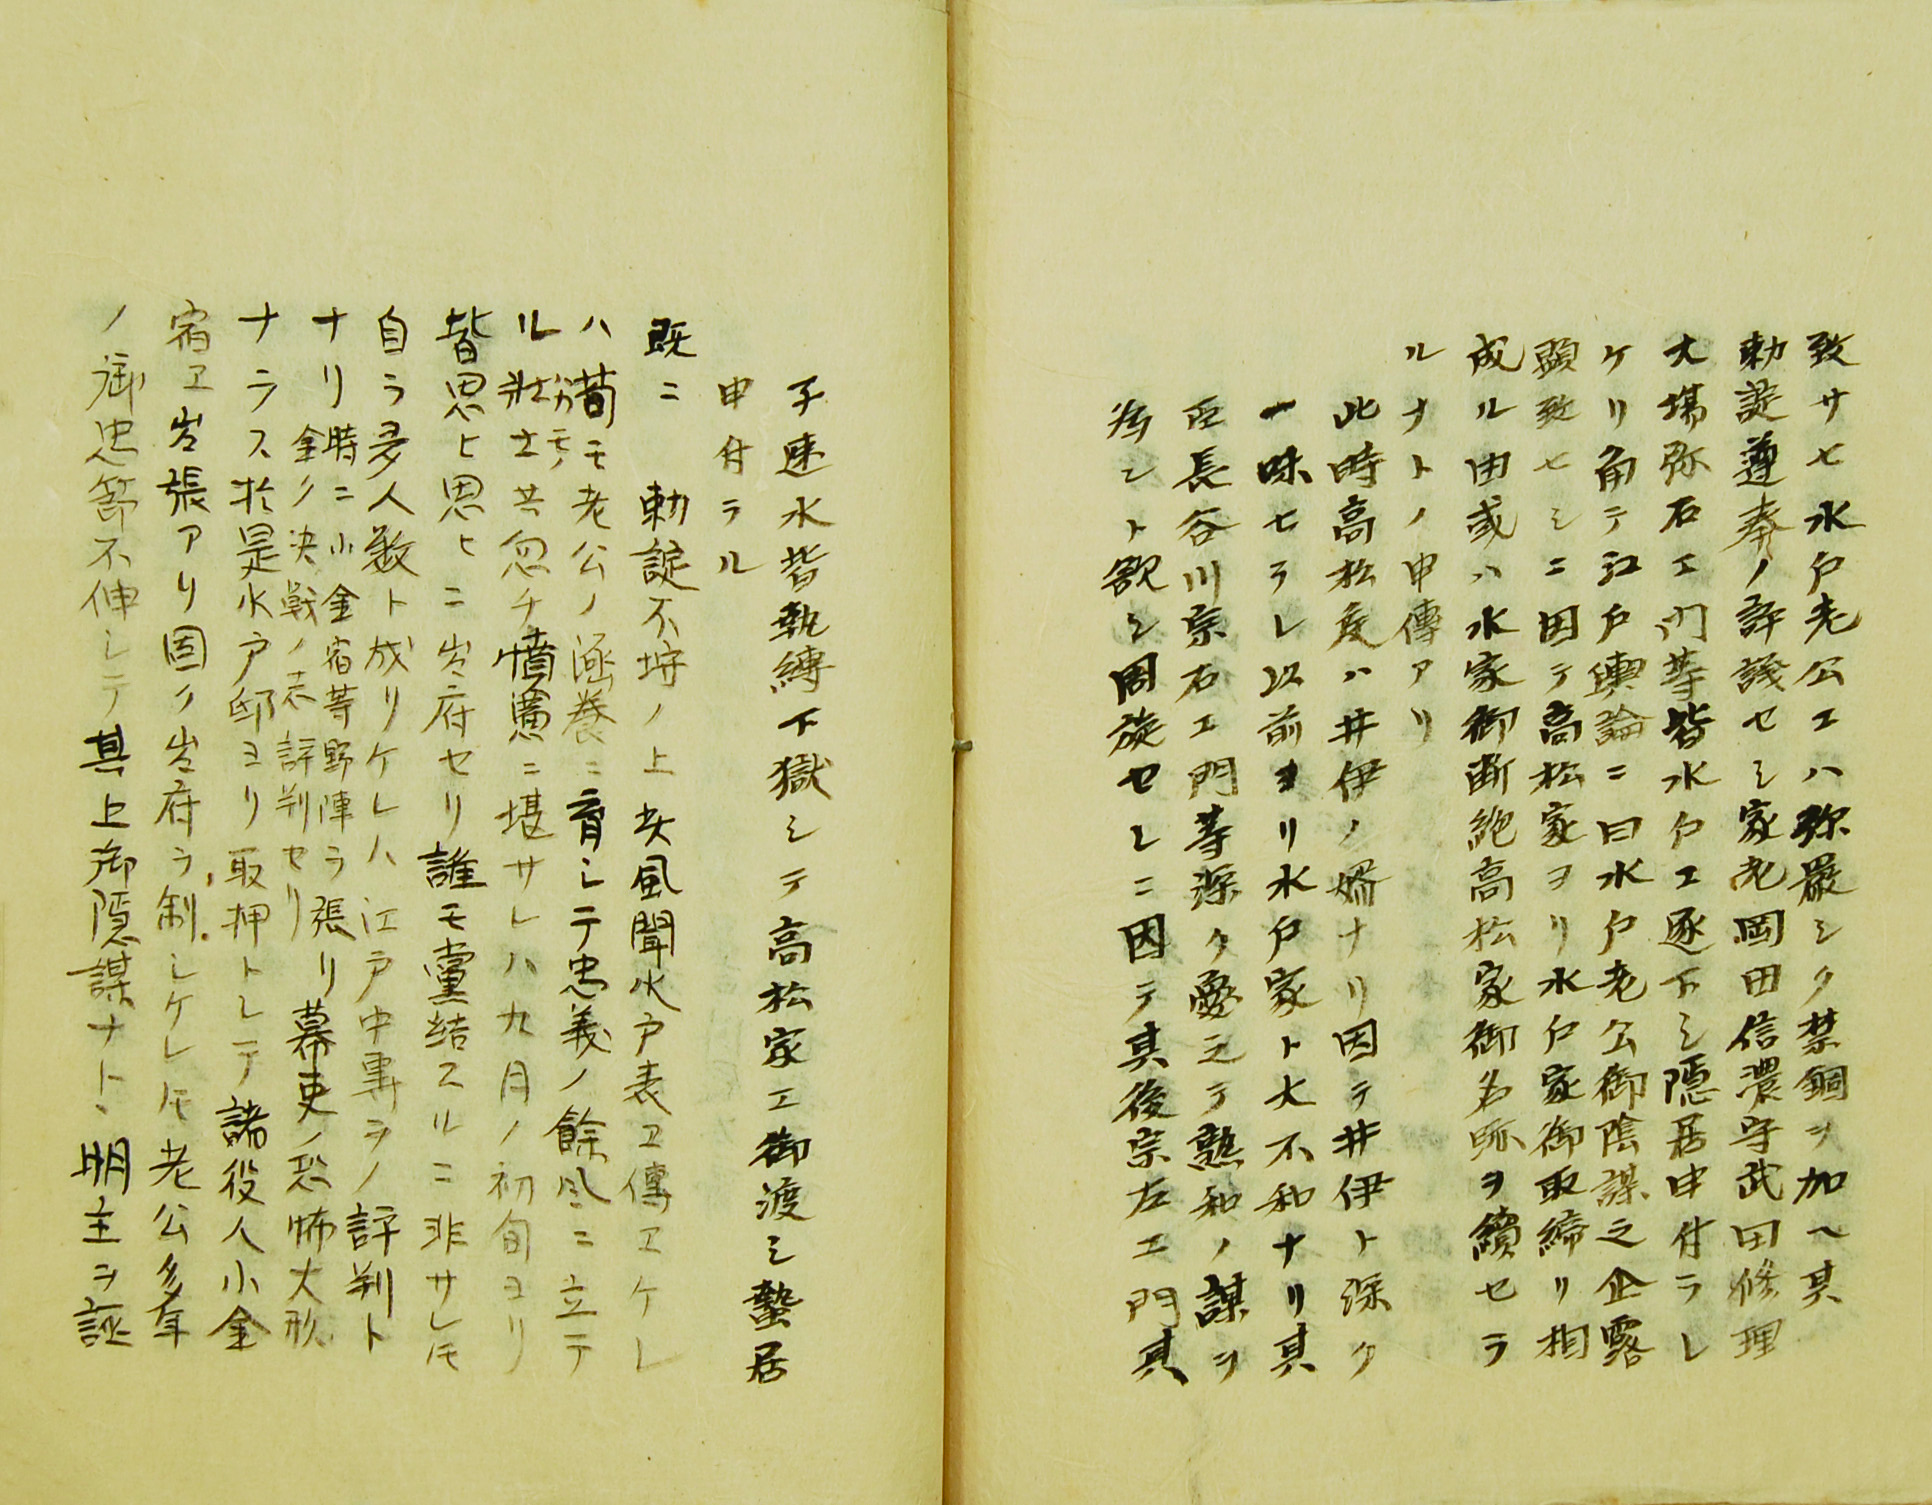 致サセ水戸老公エハ弥嚴シク禁錮ヲ加ヘ其
勅諚遵奉ノ評議セシ家老岡田信濃守武田修理
大場弥右エ門等皆水戸エ逐下シ隠居申付ラレ
ケリ角テ江戸輿論ニ曰水戸老公御陰謀之企露
顕致セシニ因テ高松家ヨリ水戸家御取締リ相
成ル由或ハ水家御断絶高松家御名跡ヲ續セラ
ルナトノ申傳アリ
此時高松矦ハ井伊ノ婿ナリ因テ井伊ト深ク
一味セラレ以前ヨリ水戸家ト大不和ナリ其
臣長谷川宗右エ門等深ク憂之テ熟和ノ謀ヲ
為シト欲シ周旋セレニ因テ其後宗左エ門其
子速水皆執縛下獄シテ高松家エ御渡シ蟄居
申付ラル
既ニ 勅諚不埒ノ上失風聞水戸表エ傳エケレ
ハ苟モ老公ノ涵養ニ育シテ忠義ノ餘風ニ立テ
ル壮士共忽チ憤懣ニ堪サレハ九月ノ初旬ヨリ
皆思ヒ思ヒニ出府セリ誰モ黨結スルニ非サレ𪜈
自ラ多人数ト成リケレハ江戸中事ヲノ評判ト
ナリ時ニ小金宿等野陣ヲ張リ幕吏ノ恐怖大形
金ノ決戦ノ志評判セリ
ナラス於是水戸邸ヨリ取押トシテ諸役人小金
宿エ出張アリ固ク出府ヲ制シケレ𪜈老公多年
ノ御忠節不伸シテ其上御隠謀ナトヽ明主ヲ誣